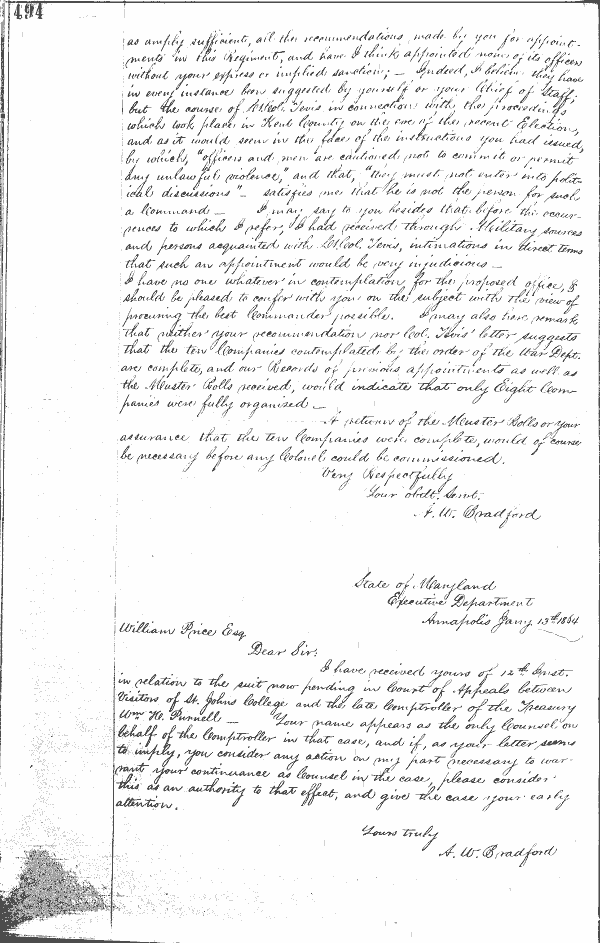 494
as amply sufficient, all the recommendations made by you for appoint-
ments in this Regiment, and have I think appointed none of its officers
without your express or implied sanction; — Indeed, I believe they have
in every instance been suggested by yourself or your Chief of Staff;
but the course of Lt. Col. Tevis in connection with the proceedings
which took place in Kent County on the eve of the recent Election,
and as it would seem in the face of the instructions you had issued,
by which, "officers and men are cautioned not to commit or permit
any unlawful violence," and that, "they must not enter into polit-
ical discussions" — satisfies me that he is not the person for such
a Command — I may say to you besides that before the occur-
rences to which I refer, I had received through Military sources
and persons acquainted with Lt. Col. Tevis, intimations in direct terms
that such an appointment would be very injudicious —
I have no one whatever in contemplation for the proposed office, I
should be pleased to confer with you on the subject with the view of
procuring the best Commander possible. I may also here remark
that neither your recommendation nor Col. Tevis' letter suggests
that the ten Companies contemplated by the order of the War Dept.
are complete, and our Records of previous appointments as well as
the Muster Rolls received, would indicate that only Eight Com-
panies were fully organised —
A return of the Muster Rolls or your
assurance that the ten Companies were complete, would of course
be necessary before any Colonel could be commissioned.
Very Respectfully
Your obdt. Servt.
A. W. Bradford
State of Maryland
Executive Department
Annapolis Jany 13th 1864
William Price Esq.
Dear Sir:
I have received yours of 12th Inst.
in relation to the suit now pending in Court of Appeals between
Visitors of St. Johns College and the late Comptroller of the Treasury
Wm H. Purnell — Your name appears as the only Counsel on
behalf of the Comptroller in that case, and if, as your letter seems
to imply, you consider any action on my part necessary to war-
rant your continuance as Counsel in the case, please consider
this as an authority to that effect, and give the case your early
attention.
Yours truly
A. W. Bradford